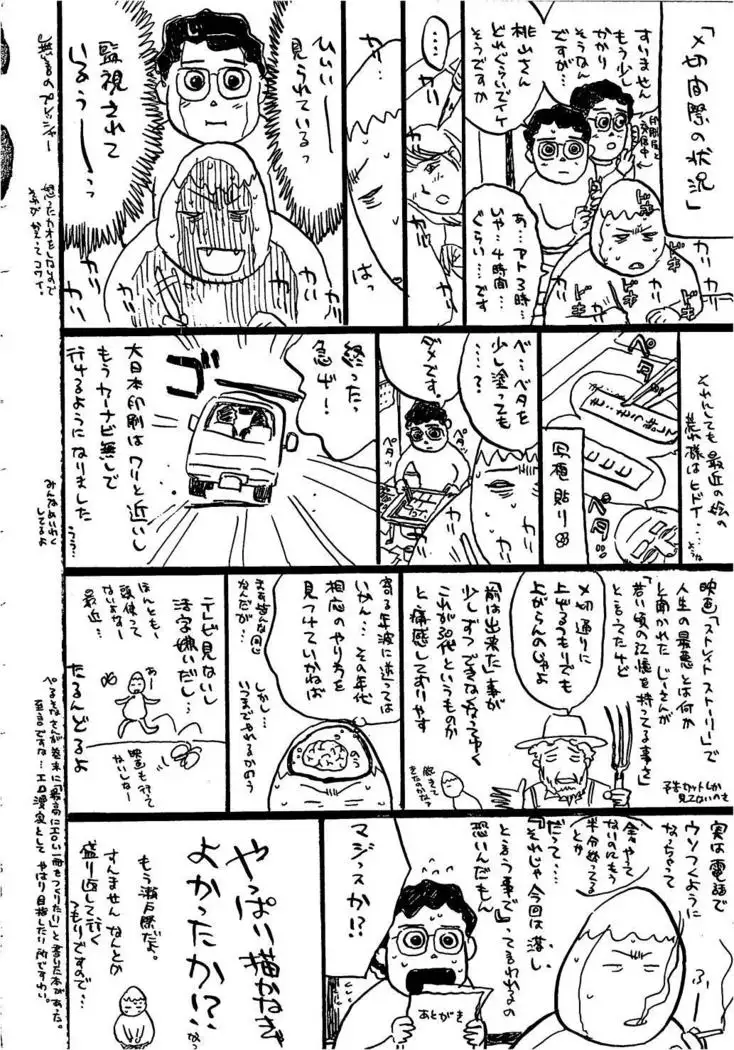 「〆切間際の状況」
印刷屋と
交信中
すいません
もう少し
かかり
そうなん
ですが…
桃山さん
どれぐらいでイケ
そうですか
あ…アト3時…
いや…4時間…
ぐらい…です
ドキ
ドキ
ドキ
ドキ
カリ
カリ
……
カリ
カリ
カリ…
はっ
ひいぃー
見られているっ
監視されて
いるぅーーっ
カリ
カリ
無言のプレッシャー
それにしても最近の絵の
荒れ様はヒドイ…
ペタ
ペタッ
写植貼り
ベ…ベタを
少し塗っても
ダメです。
ペタッ
ペタッ
カリ
カリ
カリ
終った、
急げー!
ゴー
大日本印刷はワリと近いし
もうカーナビ無しで
行けるようになりました
みんなめいわく
してるよ
映画「ストレイトストーリー」で
人生の最悪とは何か
と聞かれたじーさんが
「若い頃の記憶を持ってる事だ」
と言ってたけど
予告カットしか
見てないのも
〆切通りに
上げるつもりでも
上がらんのじゃよ
「前は出来た」事が
少しずつできなくなってゆく
これが30代というものか
と痛感しておりやす
寄る年波に逆っては
いかん…その年代
相応のやり方を
見つけていかねば
まぁ皆んな同じ
なんだが…
しかし…
いつまでやれるかのう
のう
テレビ見ないし
活字嫌いだし…
ほんともー
頭使って
ないよなー
最近…
あー
映画も行って
ないしなー
たるんどるよ
実は電話で
ウソつくように
なっちゃって
全々やって
ないのにもう
半分終ってる
とか
だって…
「それじゃ今回は落し
という事で」って言われるの
恐いんだもん
ふー
マジっスか!?
あとがき
やっぱり描かねき
よかったか!?
なっ
もう瀬戸際だよ。
すんませんなんとか
盛り返して行く
つもりですので…